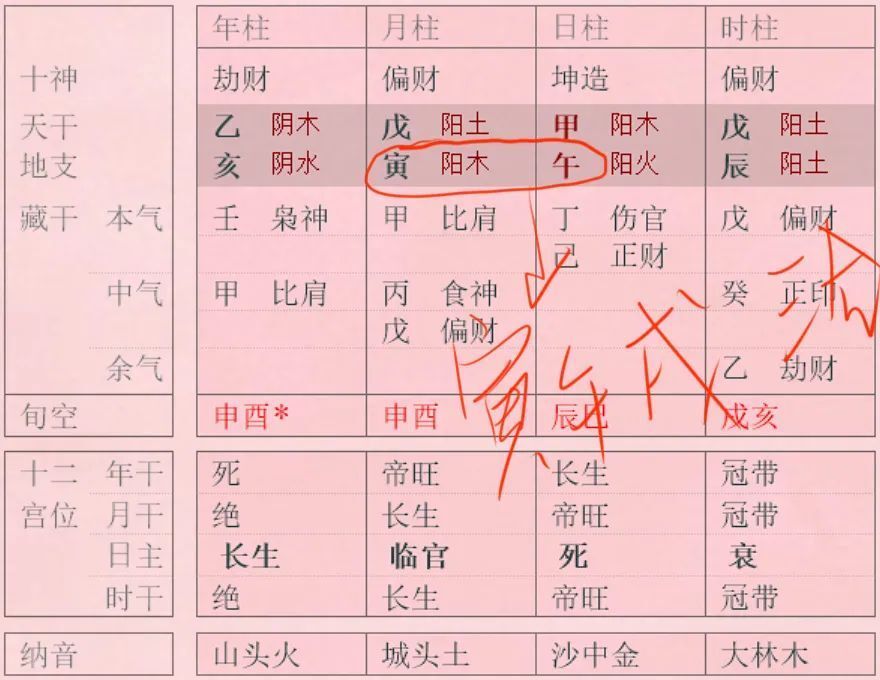 年柱 月柱 日柱 时柱
十神 劫财 偏财 坤造 偏财
天干 乙 阴木 戊 阳土 甲 阳木 戊 阳土
地支 亥 阴水 寅 阳木 午 阳火 辰 阳土
藏干 本气 壬 枭神 甲 比肩 丁 伤官 戊 偏财
己 正财
中气 甲 比肩 丙 食神 癸 正印
戊 偏财
余气 乙 劫财
旬空 申酉* 申酉 辰巳 戌亥
寅午戌
十二 年干 死 帝旺 长生 冠带
宫位 月干 绝 长生 帝旺 冠带
日主 长生 临官 死 衰
时干 绝 长生 帝旺 冠带
纳音 山头火 城头土 沙中金 大林木